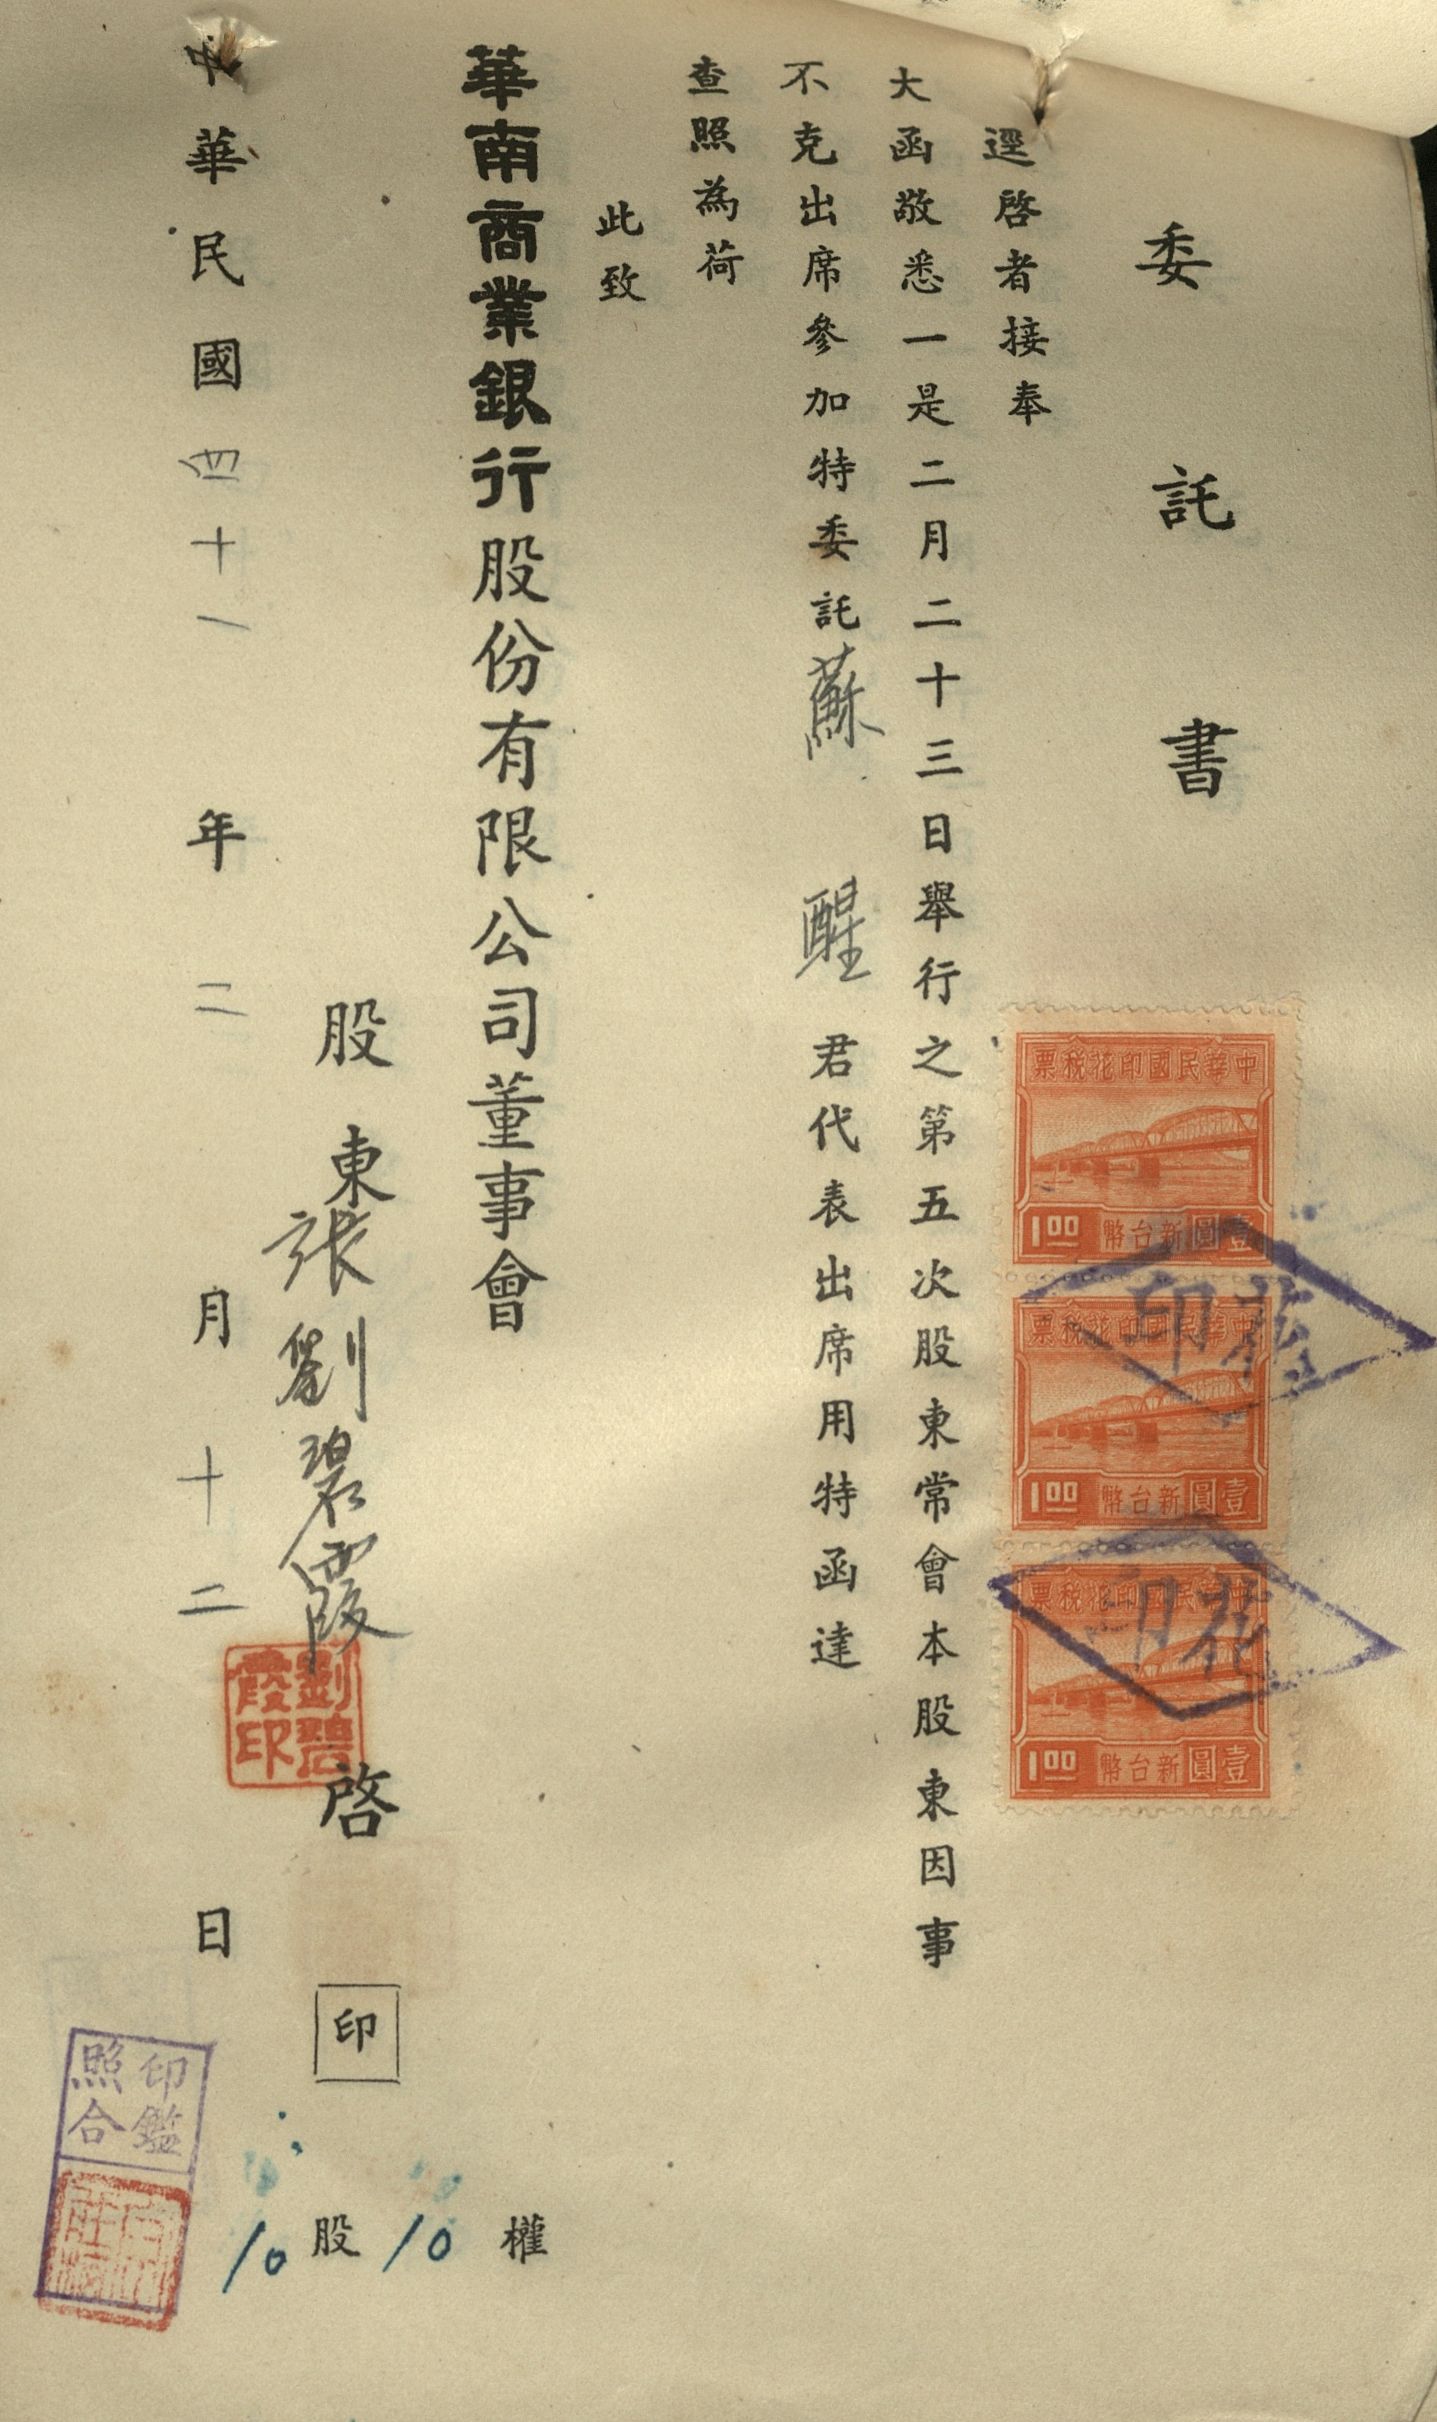 委託書
逕啓者接奉
大函敬悉一是二月二十三日舉行之第五次股東常會本股東因事
不克出席參加特委託蘇醒君代表出席用特函達
查照為荷
此致
華南商業銀行股份有限公司董事會
股東張劉碧霞啓
印
10股10權
中華民國四十一年二月十二日
中華民國印花稅票
壹圓新台幣
1.00
中華民國印花稅票
壹圓新台幣
1.00
中華民國印花稅票
壹圓新台幣
1.00
花印
花印
劉碧霞印
印鑑照合